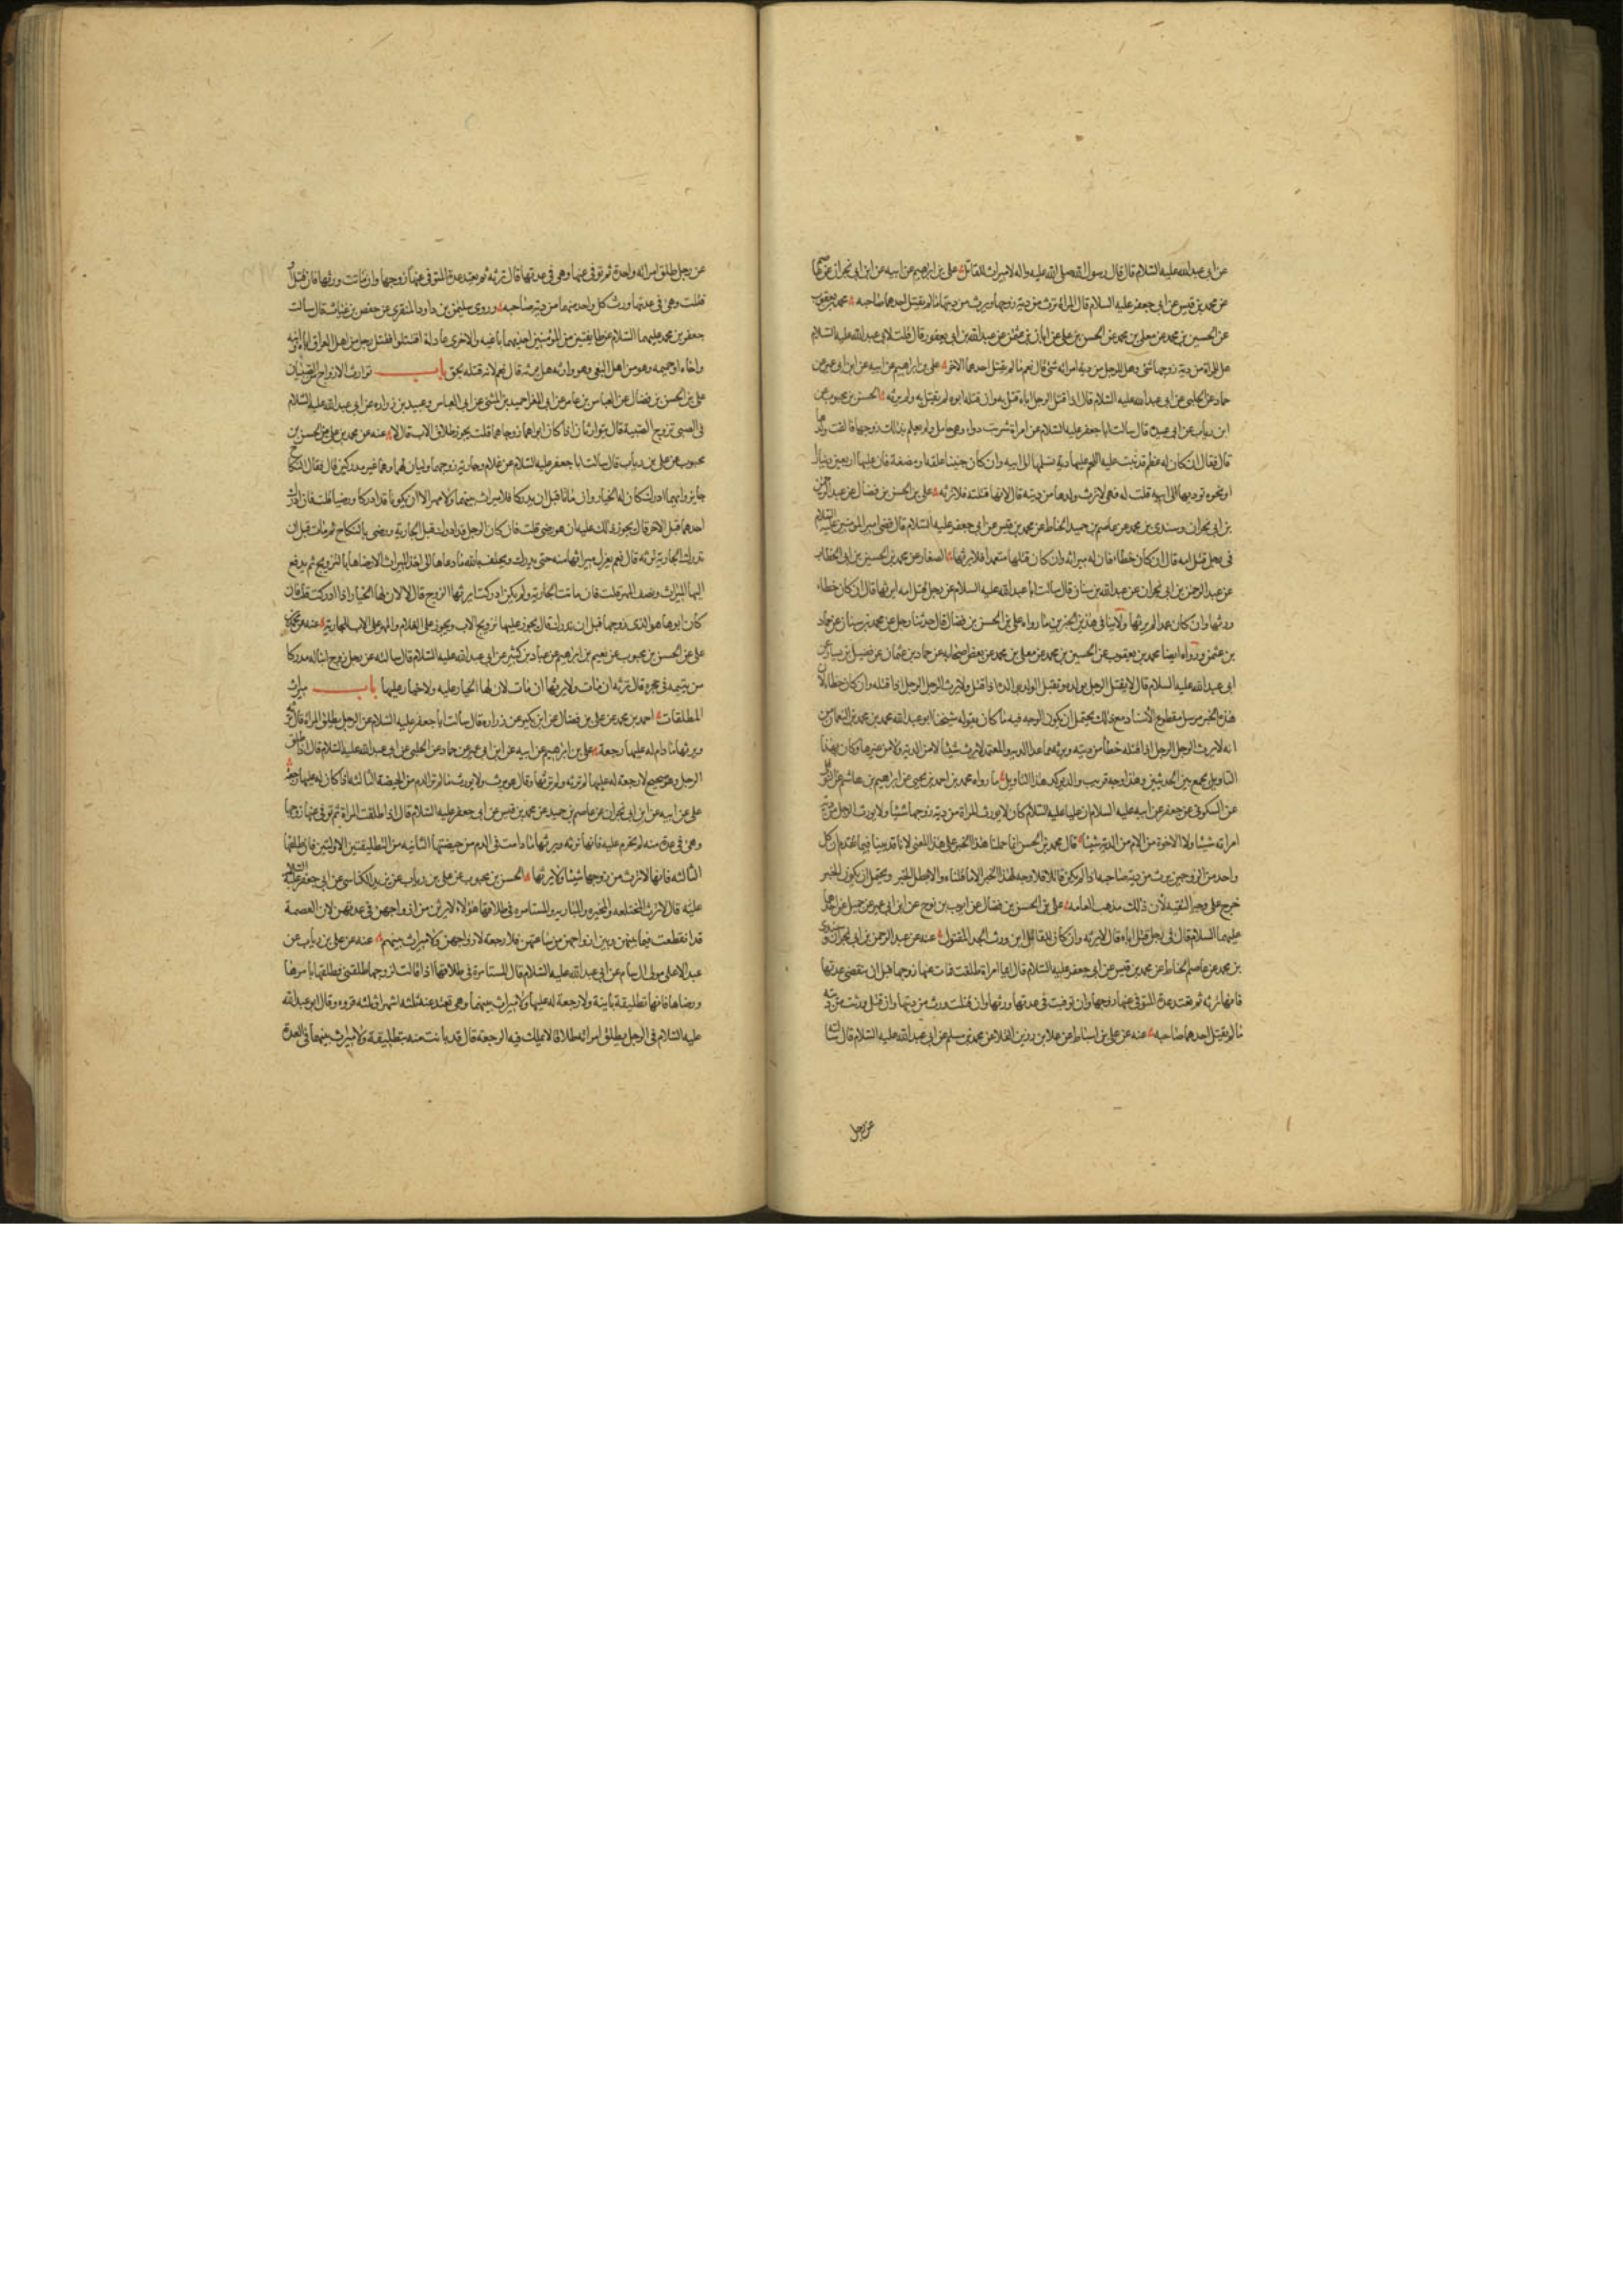 عن ابي عبد الله عليه السلام قال قال رسول الله صلى الله عليه واله لا ميراث للقاتل علي بن ابراهيم عن ابيه عن ابن ابي نجران عن عاصم
عن محمد بن قيس عن ابي جعفر عليه السلام قال المراة ترث من دية زوجها ويرث من ديتها ما لم يقتل احدهما صاحبه محمد بن يعقوب
عن الحسين بن محمد عن معلى بن محمد عن الحسن بن علي عن ابان بن عثمن عن عبد الله بن ابي يعفور قال قلت لابي عبد الله عليه السلام
هل للمراة من دية زوجها شئ وهل للرجل من دية امراته شئ قال نعم ما لم يقتل احدهما الاخر علي بن ابراهيم عن ابيه عن ابن ابي عمير عن
حماد عن الحلبي عن ابي عبد الله عليه السلام قال اذا قتل الرجل اباه قتل به وان قتله ابوه لم يقتل به ولم يرثه الحسن بن محبوب عن
ابن رياب عن ابي عبيدة قال سالت ابا جعفر عليه السلام عن امراة شربت دواء وهي حامل ولم يعلم بذلك زوجها فالقت ولدها
قال فقال ان كان له عظم قد نبت عليه اللحم عليها دية تسلمها الى ابيه وان كان جنينا علقة او مضغة فان عليها اربعين دينارا
او غرة توديها الى ابيه قلت له فهي لا ترث ولدها من ديته قال لانها قتلته فلا ترثه علي بن الحسن بن فضال عن عبد الرحمن
بن ابي نجران وسندي بن محمد عن عاصم بن حميد الحناط عن محمد بن قيس عن ابي جعفر عليه السلام قال قضى امير المومنين عليه السلام
في رجل قتل امه قال ان كان خطاء فان له ميراثه وان كان قتلها متعمدا فلا يرثها الصفار عن محمد بن الحسين بن ابي الخطاب
عن عبد الرحمن بن ابي نجران عن عبد الله بن سنان قال سالت ابا عبد الله عليه السلام عن رجل قتل امه ايرثها قال ان كان خطاء
ورثها وان كان عمدا لم يرثها ولا ينافي هذين الخبرين ما رواه علي بن الحسن بن فضال قال حدثنا رجل عن محمد بن سنان عن حماد
بن عثمن ورواه ايضا محمد بن يعقوب عن الحسين بن محمد عن معلى بن محمد عن بعض اصحابه عن حماد بن عثمان عن فضيل بن يسار عن
ابي عبد الله عليه السلام قال لا يقتل الرجل بولده ويقتل الولد بوالده اذا قتل ولا يرث الرجل الرجل اذا قتله وان كان خطا لان
هذا الخبر مرسل مقطوع الاسناد مع ذلك يحتمل ان يكون الوجه فيه ما كان يقوله شيخنا ابو عبد الله محمد بن محمد بن النعمان من
انه لا يرث الرجل الرجل اذا قتله خطا من ديته ويرثه مما عدا الدية والمتعمد لا يرث شيئا لا من الدية ولا من غيرها وكان بهذا
التاويل يجمع بين الحديثين وهذا وجه قريب والذي يوكد هذا التاويل ما رواه محمد بن احمد بن يحيى عن ابراهيم بن هاشم عن النوفلي
عن السكوني عن جعفر عن ابيه عليه السلام ان عليا عليه السلام كان لا يورث المراة من دية زوجها شيئا ولا يورث الرجل من دية
امراته شيئا ولا الاخوة من الام من الدية شيئا قال محمد بن الحسن انما حملنا هذا الخبر على هذا المعنى لانا قد بينا فيما تقدم ان كل
واحد من الزوجين يرث من دية صاحبه اذا لم يكن قاتلا فلا وجه لهذا الخبر الا ما قلناه والا بطل الخبر ويحتمل ان يكون الخبر
خرج على وجه التقية لان ذلك مذهب العامه علي بن الحسن بن فضال عن ايوب بن نوح عن ابن ابي عمير عن جميل عن احدهما
عليهما السلام قال في رجل قتل اباه قال لا يرثه وان كان للقاتل ابن ورث الجد المقتول عنه عن عبد الرحمن بن ابي نجران وسندي
بن محمد عن عاصم الحناط عن محمد بن قيس عن ابي جعفر عليه السلام قال ايما امراة طلقت فمات عنها زوجها قبل ان تنقضي عدتها
فانها ترثه ثم تعتد عدة المتوفى عنها زوجها وان توفيت في عدتها ورثها وان قتلت ورث من ديتها وان قتل ورثت من ديته
ما لم يقتل احدهما صاحبه عنه عن علي بن اسباط عن علا بن رزين القلا عن محمد بن مسلم عن ابي عبد الله عليه السلام قال سالته
عن رجل
عن رجل طلق امراته واحدة ثم توفي عنها وهي في عدتها قال ترثه ثم تعتد عدة المتوفى عنها زوجها وان ماتت ورثها فان قتل او
قتلت وهي في عدتها ورث كل واحد منهما من دية صاحبه وروى سليمن بن داود المنقري عن حفص بن غياث قال سالت
جعفر بن محمد عليهما السلام عن طايفتين من المومنين احديهما باغيه والاخرى عادلة اقتتلوا فقتل رجل من اهل العراق اباه او ابنه
او اخاه او حميمه وهو من اهل البغي وهو وارثه هل يرثه قال نعم لانه قتله بحق باب توارث الازواج من الصبيان
علي بن الحسن بن فضال عن العباس بن عامر عن ابي المغرا حميد بن المثنى عن ابي العباس وعبيد بن زراره عن ابي عبد الله عليه السلام
في الصبي تزوج الصبية قال يتوارثان اذا كان ابواهما زوجاهما قلت يجوز طلاق الاب قال لا عنه عن محمد بن علي عن الحسن بن
محبوب عن علي بن رياب قال سالت ابا جعفر عليه السلام عن غلام وجارية زوجهما وليان لهما وهما غير مدركين قال فقال النكاح
جايز وايهما ادرك كان له الخيار وان ماتا قبل ان يدركا فلا ميراث بينهما ولا مهر الا ان يكونا قد ادركا ورضيا قلت فان ادرك
احدهما قبل الاخر قال يجوز ذلك عليه ان هو رضي قلت فان كان الرجل ادرك قبل الجارية ورضي بالنكاح ثم مات قبل ان
تدرك الجارية اترثه قال نعم يعزل ميراثها منه حتى يدرك ويحلف بالله ما دعاها الى اخذ الميراث الا رضاها بالتزويج ثم يدفع
اليها الميراث ونصف المهر قلت فان ماتت الجارية ولم يكن ادركت ايرثها الزوج قال لا لان لها الخيار اذا ادركت قلت فان
كان ابوها هو الذي زوجها قبل ان تدرك قال يجوز عليها تزويج الاب ويجوز على الغلام والمهر على الاب للجارية عنه عن محمد بن
علي عن الحسن بن محبوب عن نعيم بن ابراهيم عن عباد بن كثير عن ابي عبد الله عليه السلام قال سالته عن رجل زوج ابنا له مدركا
من يتيمه في حجره قال ترثه ان مات ولا يرثها ان ماتت لان لها الخيار عليه ولا خيار عليها باب ميراث
المطلقات احمد بن محمد عن علي بن فضال عن ابن بكير عن زراره قال سالت ابا جعفر عليه السلام عن الرجل يطلق المراة قال ترثه
ويرثها ما دام له عليها رجعة علي بن ابراهيم عن ابيه عن ابن ابي عمير عن حماد عن الحلبي عن ابي عبد الله عليه السلام قال اذا طلق
الرجل وهو صحيح لا رجعة له عليها لم ترثه ولم يرثها وقال هو يرث ويورث ما لم تر الدم من الحيضة الثالثه اذا كان له عليها رجعة
علي عن ابيه عن ابن ابي نجران عن عاصم بن حميد عن محمد بن قيس عن ابي جعفر عليه السلام قال اذا طلقت المراة ثم توفي عنها زوجها
وهي في عدة منه لم تحرم عليه فانها ترثه ويرثها ما دامت في الدم من حيضتها الثانيه من التطليقتين الاولتين فان طلقها
الثالثه فانها لا ترث من زوجها شيئا ولا يرثها الحسن بن محبوب عن علي بن رياب عن يزيد الكناسي عن ابي جعفر عليه السلام
عليه قال لا ترث المختلعه والمخيره والمباريه والمستامره في طلاقها هولاء لا يرثن من ازواجهن في عدتهن لان العصمة
قد انقطعت فيما بينهن وبين ازواجهن من ساعتهن فلا رجعة لازواجهن ولا ميراث بينهم عنه عن علي بن رياب عن
عبد الاعلى مولى ال سام عن ابي عبد الله عليه السلام قال المستامرة في طلاقها اذا قالت لزوجها طلقني فطلقها بامرها
ورضاها فانها تطليقة باينة ولا رجعة له عليها ولا ميراث بينهما وهي تعتد عنه ثلثه اشهر او ثلثه قروء وقال ابو عبد الله
عليه السلام في الرجل يطلق امراته طلاقا لا يملك فيه الرجعة قال قد بانت منه بتطليقة ولا ميراث بينهما في العدة